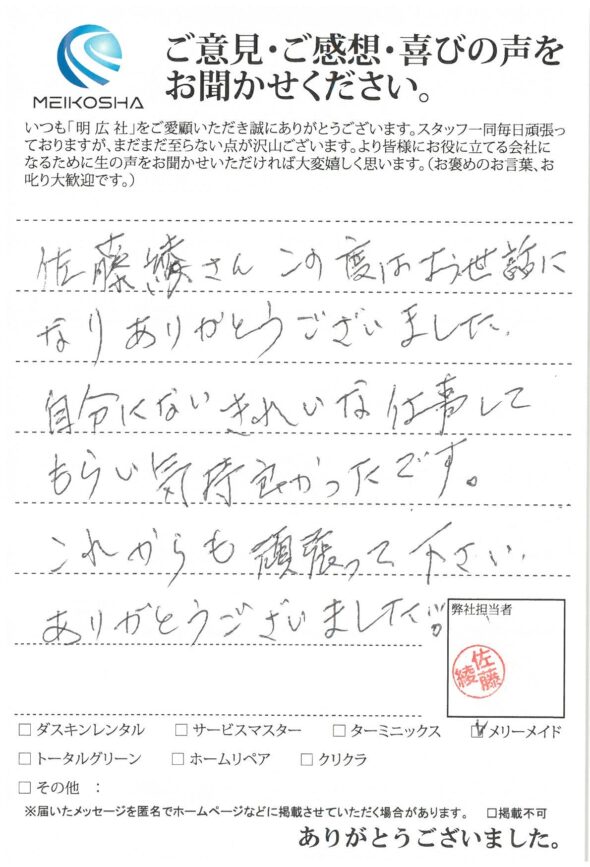 MEIKOSHA
ご意見・ご感想・喜びの声を
お聞かせください。
いつも「明広社」をご愛顧いただき誠にありがとうございます。スタッフ一同毎日頑張っ
ておりますが、まだまだ至らない点が沢山ございます。より皆様にお役に立てる会社に
なるために生の声をお聞かせいただければ大変嬉しく思います。（お褒めのお言葉、お
叱り大歓迎です。）
佐藤綾さん この度はお世話に
なりありがとうございました.
自分にないきれいな仕事して
もらい気持良かったです。
これからも頑張って下さい.
ありがとうございました!!
弊社担当者
佐藤綾
□ダスキンレンタル □サービスマスター □ターミニックス ☑メリーメイド
□トータルグリーン □ホームリペア □クリクラ
□その他 ：
※届いたメッセージを匿名でホームページなどに掲載させていただく場合があります。 □掲載不可
ありがとうございました。